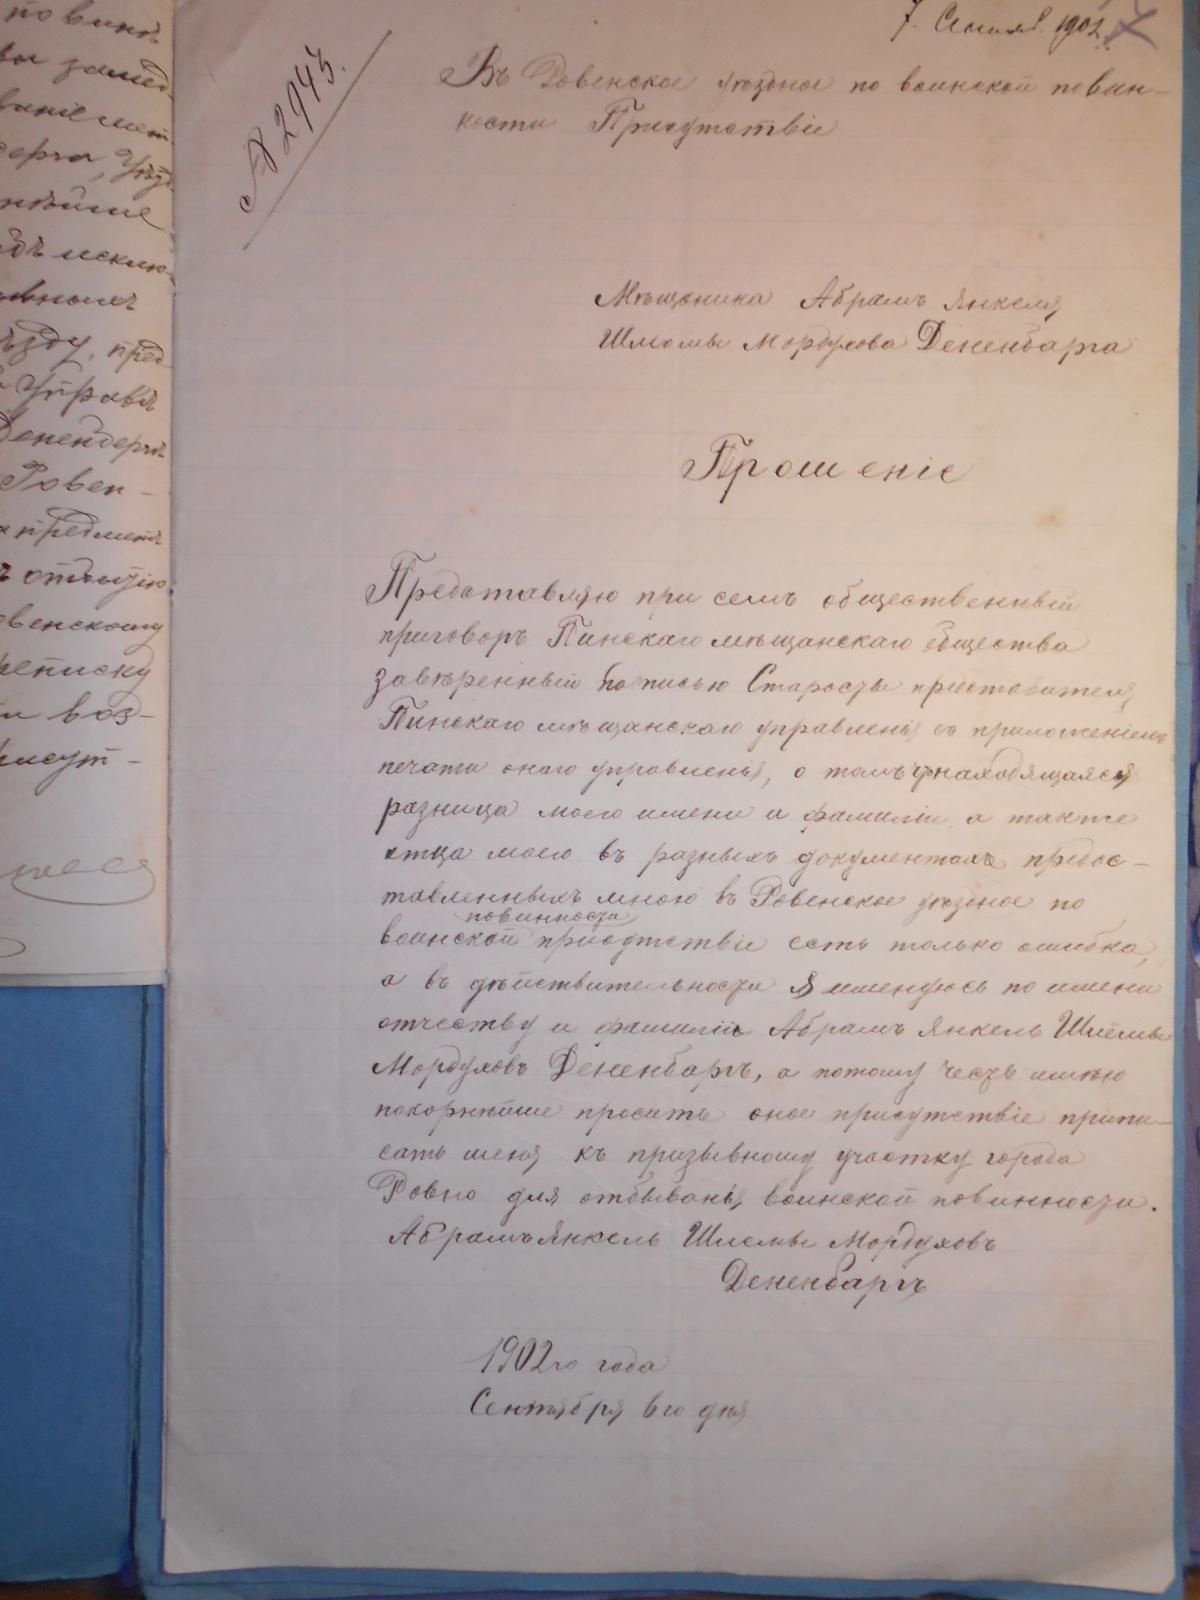 по винѣ
вы замед
ваніе мѣст
дерга, Уѣзд
нѣйше
исклю-
вныхъ
ѣзду, пред
Управѣ
Дененбергъ
Ровен-
предмет
отбытію
венскому
реписку
и воз-
рисут-
7. Сентяб. 1902 7
№ 2945.
Въ Ровенское уѣздное по воинской повин-
ности Присутствіе
Мѣщанина Абрамъ Янкеля
Шлемы Мордухова Дененбарга
Прошеніе
Представляю при семъ общественный
приговоръ Пинскаго мѣщанскаго общества
завѣренный подписью Старосты представителя
Пинскаго мѣщанскаго управленія съ приложеніемъ
печати онаго управленія, о томъ находящаяся
разница моего имени и фамиліи, а также
отца моего въ разныхъ документахъ предос-
тавленныхъ мною въ Ровенское уѣздное по
повинности
воинской присутствіе есть только ошибка,
а въ дѣйствительности я именуюсь по имени
отчеству и фамиліи Абрамъ Янкель Шлемы
Мордуховъ Дененбаргъ, а потому честь имѣю
покорнѣйше просить оное присутствіе припи-
сать меня къ призывному участку города
Ровно для отбыванія воинской повинности.
Абрамъ Янкель Шлемы Мордуховъ
Дененбаргъ
1902го года
Сентября 6го дня